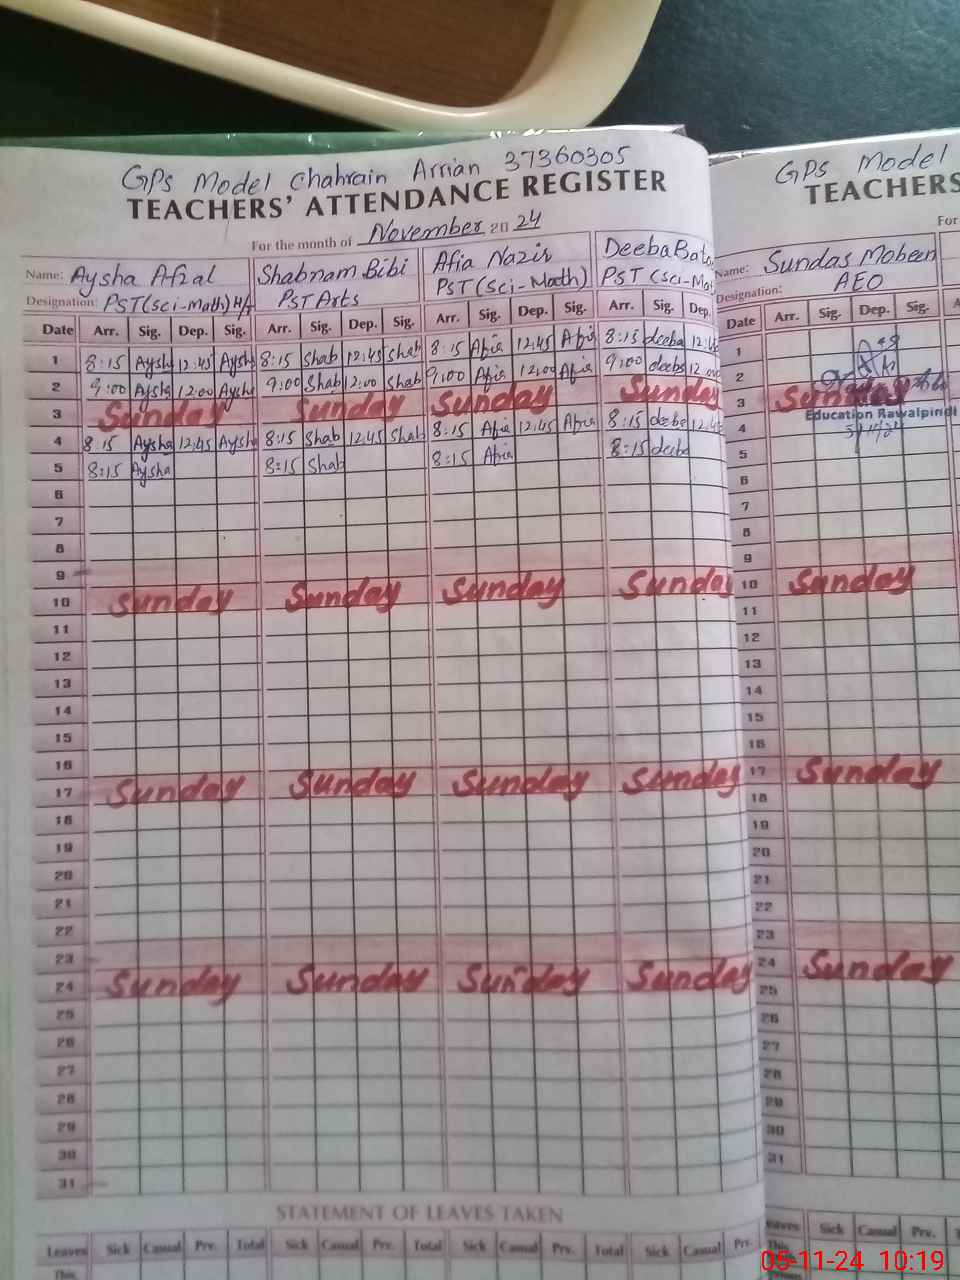 GPS Model Chahrain Arrian 37360305
TEACHERS' ATTENDANCE REGISTER
For the month of November 2024
Name: Aysha Afzal Shabnam Bibi Afia Nazir Deeba Bato
Designation: PST(Sci-Math) H/T PST Arts PST (Sci-Math) PST (Sci-Mat
Date Arr. Sig. Dep. Sig. Arr. Sig. Dep. Sig. Arr. Sig. Dep. Sig. Arr. Sig. Dep.
1 8:15 Aysha 12:45 Aysha 8:15 Shab 12:45 Shab 8:15 Afia 12:45 Afia 8:15 deeba 12:45
2 9:00 Aysha 12:00 Aysha 9:00 Shab 12:00 Shab 9:00 Afia 12:00 Afia 9:00 deeba 12:00
3 Sunday Sunday Sunday Sunday
4 8:15 Aysha 12:45 Aysha 8:15 Shab 12:45 Shab 8:15 Afia 12:45 Afia 8:15 deeba 12:4
5 8:15 Aysha 8:15 Shab 8:15 Afia 8:15 deeba
6
7
8
9
10 Sunday Sunday Sunday Sunday
11
12
13
14
15
16
17 Sunday Sunday Sunday Sunday
18
19
20
21
22
23
24 Sunday Sunday Sunday Sunday
25
26
27
28
29
30
31
STATEMENT OF LEAVES TAKEN
Leaves Sick Casual Prv. Total Sick Casual Prv. Total Sick Casual Prv. Total Sick Casual Prv.
This
GPS Model
TEACHERS
For
Name: Sundas Mobeen
Designation: AEO
Date Arr. Sig. Dep. Sig.
1
2
3 Sunday
Education Rawalpindi
4
5/11/24
5
6
7
8
9
10 Sunday
11
12
13
14
15
16
17 Sunday
18
19
20
21
22
23
24 Sunday
25
26
27
28
29
30
31
Leaves Sick Casual Prv.
This
05-11-24 10:19